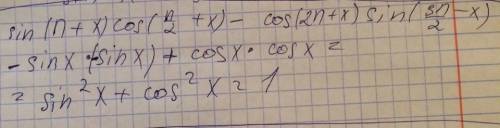 sin(π+x)cos(π/2+x) - cos(2π+x)sin(3π/2-x)
-sinx·(-sinx) + cosx·cosx =
= sin²x + cos²x = 1